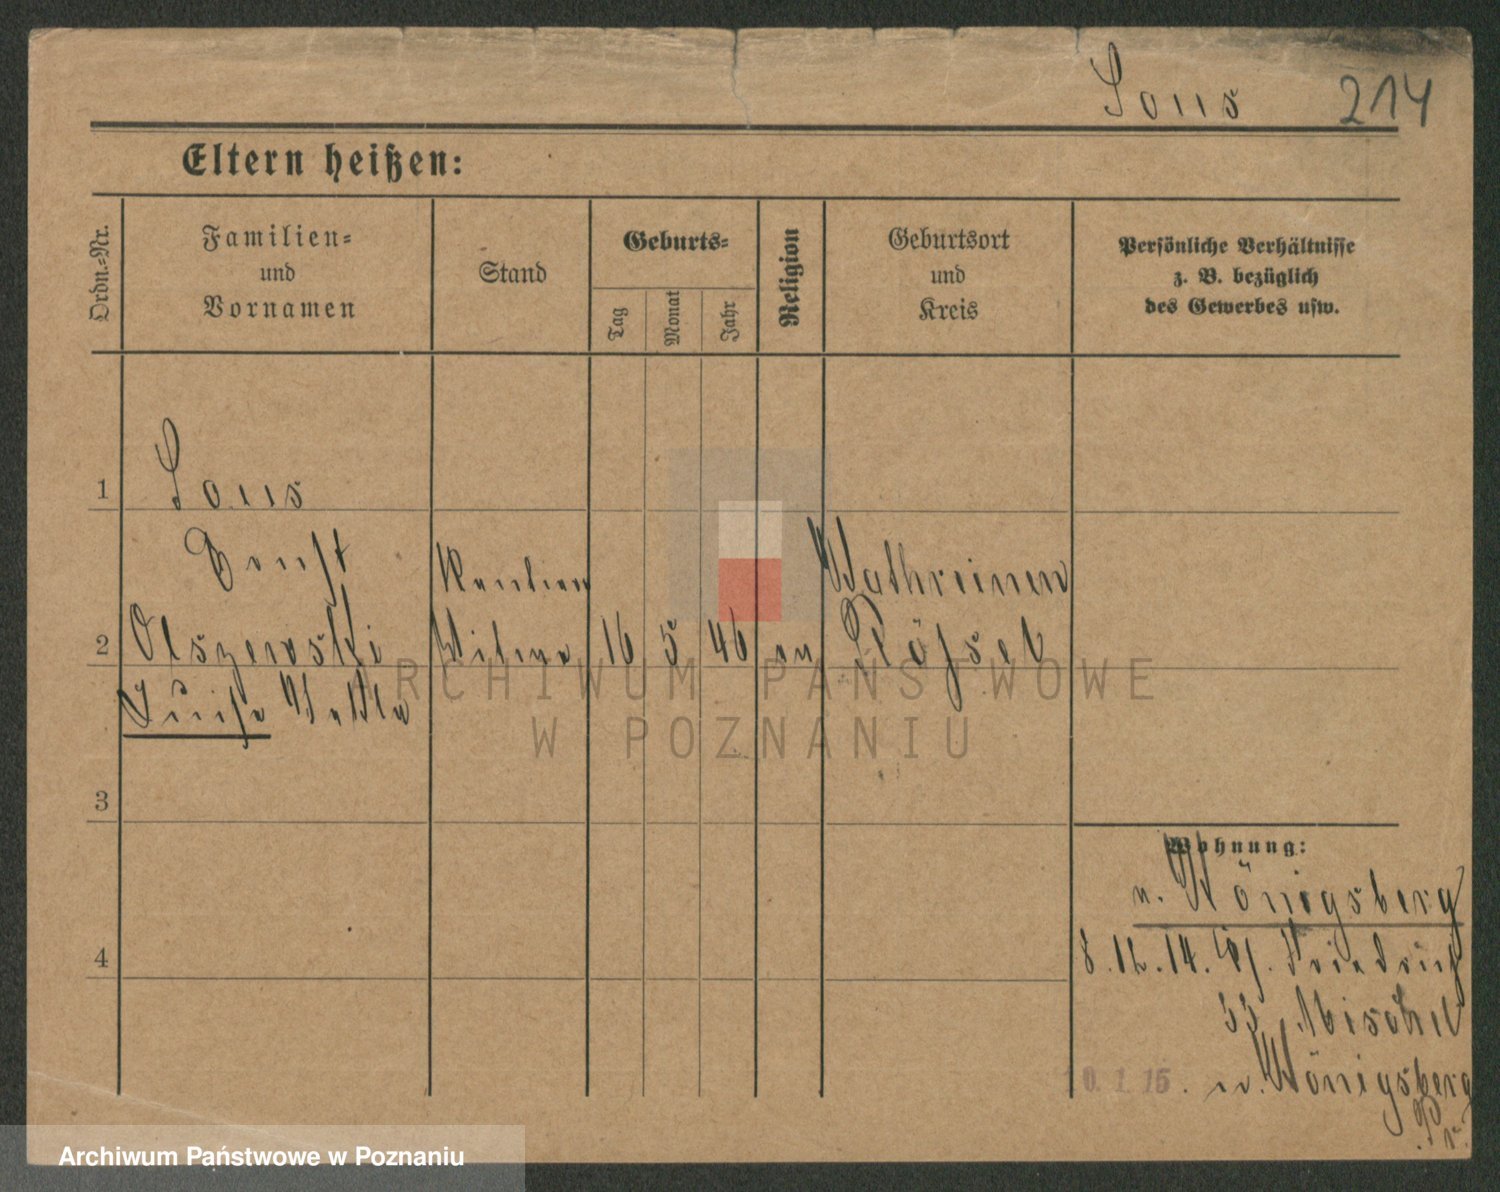 Sous 214
Eltern heißen:
Ordn.=Nr.
Familien=
und
Vornamen
Stand
Geburts=
Tag
Monat
Jahr
Religion
Geburtsort
und
Kreis
Persönliche Verhältnisse
z. B. bezüglich
des Gewerbes usw.
1
Sous
Ernst
2 Olszewski 16 5 46 ev Rößel
Luise
3
4
Wohnung:
v. Königsberg
8.12.14.
33
0.1.15. n. Königsberg
Pr.
ARCHIWUM PAŃSTWOWE
W POZNANIU
Archiwum Państwowe w Poznaniu